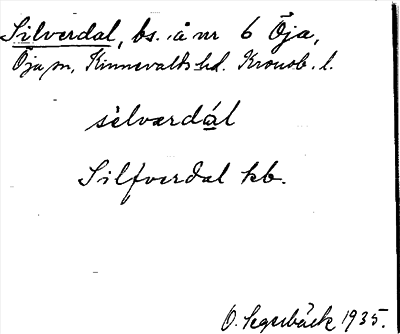 Silverdal, bs. å nr 6 Öja,
Öja sn, Kinnevalds hd. Kronob. l.
sèlvardál
Silfverdal kb.
O. Segerbäck 1935.